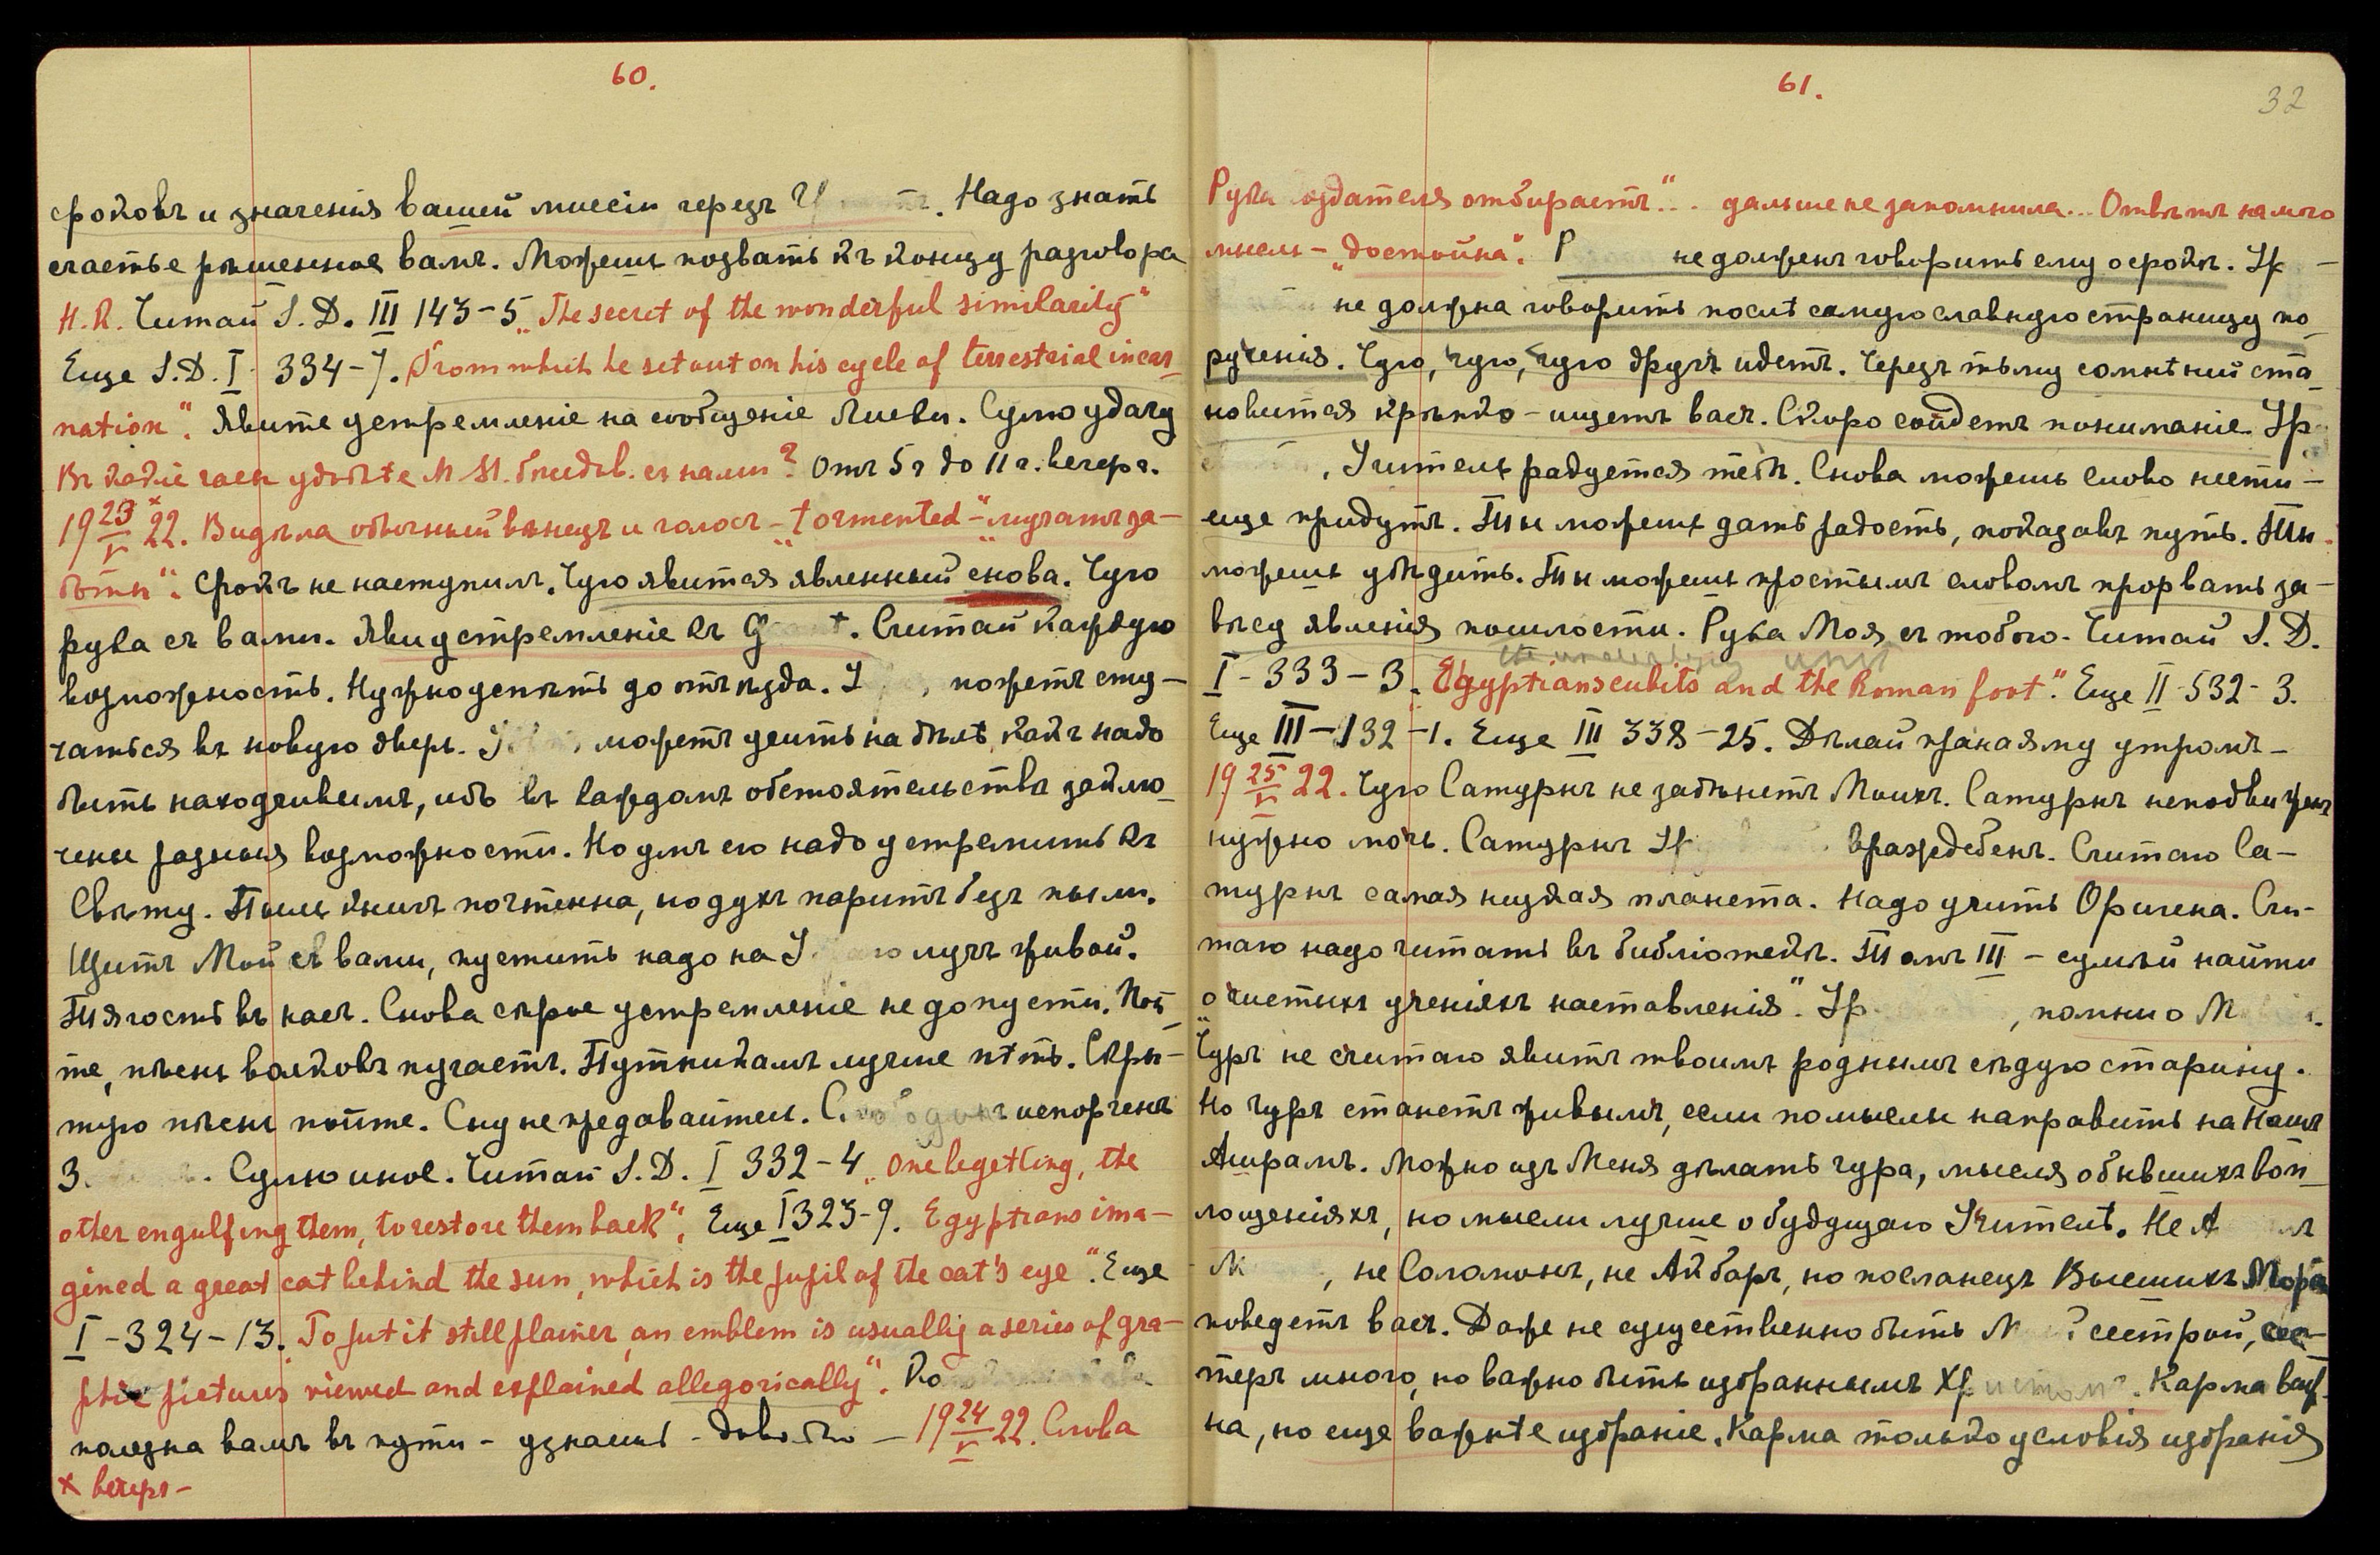 60.
сроковъ и значенія вашей миссіи черезъ Надо знать
счастье рѣшенное вамъ. Можешь позвать къ концу разговора
Н.К. Читай S.D. III 143-5 „The secret of the wonderful similarity"
Еще S.D. I 334-7. „From which he set out on his cycle of terrestrial incar-
nation". Явите устремленіе на сообщеніе Чую удачу
Въ какіе часы удобнѣе М. бесѣдов. съ нами? Отъ 5 ч до 11 ч. вечера.
19 23/V 22. Видѣла обычный вѣнецъ и голосъ - „tormented" - „мучатъ за-
боты". Срокъ не наступилъ. Чую явится явленный снова. Чую
рука съ вами. Яви устремленіе къ G t. Считай каждую
возможность. Нужно успѣть до отъѣзда. У , можетъ сту-
чаться въ новую дверь. У можетъ учить на дѣлѣ, какъ надо
быть находчивымъ, ибо въ каждомъ обстоятельствѣ заклю-
чены разныя возможности. Но умъ его надо устремить къ
Свѣту. Пыль книгъ почтенна, но духъ паритъ безъ пыли.
Щитъ Мой съ вами, пустить надо на У лучъ живой.
Тягость въ насъ. Снова сѣрое устремленіе не допусти. Пой-
те, пѣснь волковъ пугаетъ. Путникамъ лучше пѣть. Скры-
тую пѣснь пойте. Сну не предавайтесь. С испорченъ
З . Чую иное. Читай S.D. I 332-4 „One begetting, the
other engulfing them, to restore them back". Еще I 323-9. Egyptians ima-
gined a great cat behind the sun, which is the pupil of the cat's eye". Еще
I-324-13. „To put it still plainer, an emblem is usually a series of gra-
phic pictures viewed and explained allegorically". Ко
полезна вамъ въ пути - узнаешь - довольно - 19 24/V 22. Слова
× вечеръ -
61.
32
Рука Создателя отбираетъ"... дальше не запомнила... Отвѣтъ на мою
мысль - „достойна". Р не долженъ говорить ему о срокѣ. Ур-
не должна говорить послѣ самую славную страницу по-
рученія. Чую, чую, чую другъ идетъ. Черезъ тьму сомнѣній ста-
новится крѣпко - ищетъ васъ. Скоро сойдетъ пониманіе. Ур
, Учитель радуется тебѣ. Снова можешь слово нести -
еще придутъ. Ты можешь дать радость, показавъ путь. Ты
можешь убѣдить. Ты можешь простымъ словомъ прорвать за-
вѣсу явленія пошлости. Рука Моя съ тобою. Читай S.D.
I-333-3. „Egyptians cubits and the Roman foot". Еще II-532-3.
Еще III-132-1. Еще III 338-25. Дѣлай пранаяму утромъ -
19 25/V 22. Чую Сатурнъ не задѣнетъ Моихъ. Сатурнъ неподвиженъ
нужно мочь. Сатурнъ Ур враждебенъ. Считаю Са-
турнъ самая низкая планета. Надо учить Оригена. Счи-
таю надо читать въ библіотекѣ. Томъ III - сумѣй найти
„о чистыхъ ученіяхъ наставленія". Ур , помни о М
Чуръ не считаю явитъ твоимъ роднымъ сѣдую старину.
Но чуръ станетъ живымъ, если помыслы направить на Нашъ
Ашрамъ. Можно изъ Меня дѣлать чура, мысля о бывшихъ воп-
лощеніяхъ, но мысли лучше о будущаго Учителѣ. Не А
М , не Соломонъ, не Акбаръ, но посланецъ Высшихъ Морія
поведетъ васъ. Даже не существенно быть М сестрой, сес-
теръ много, но важно быть избраннымъ Христомъ. Карма важ-
на, но еще важнѣе избраніе. Карма только условія избранія